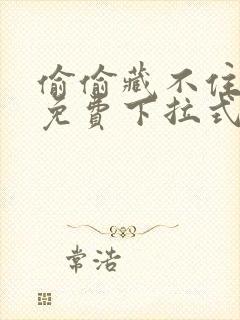 偷偷藏不住
免费下拉式
常浩